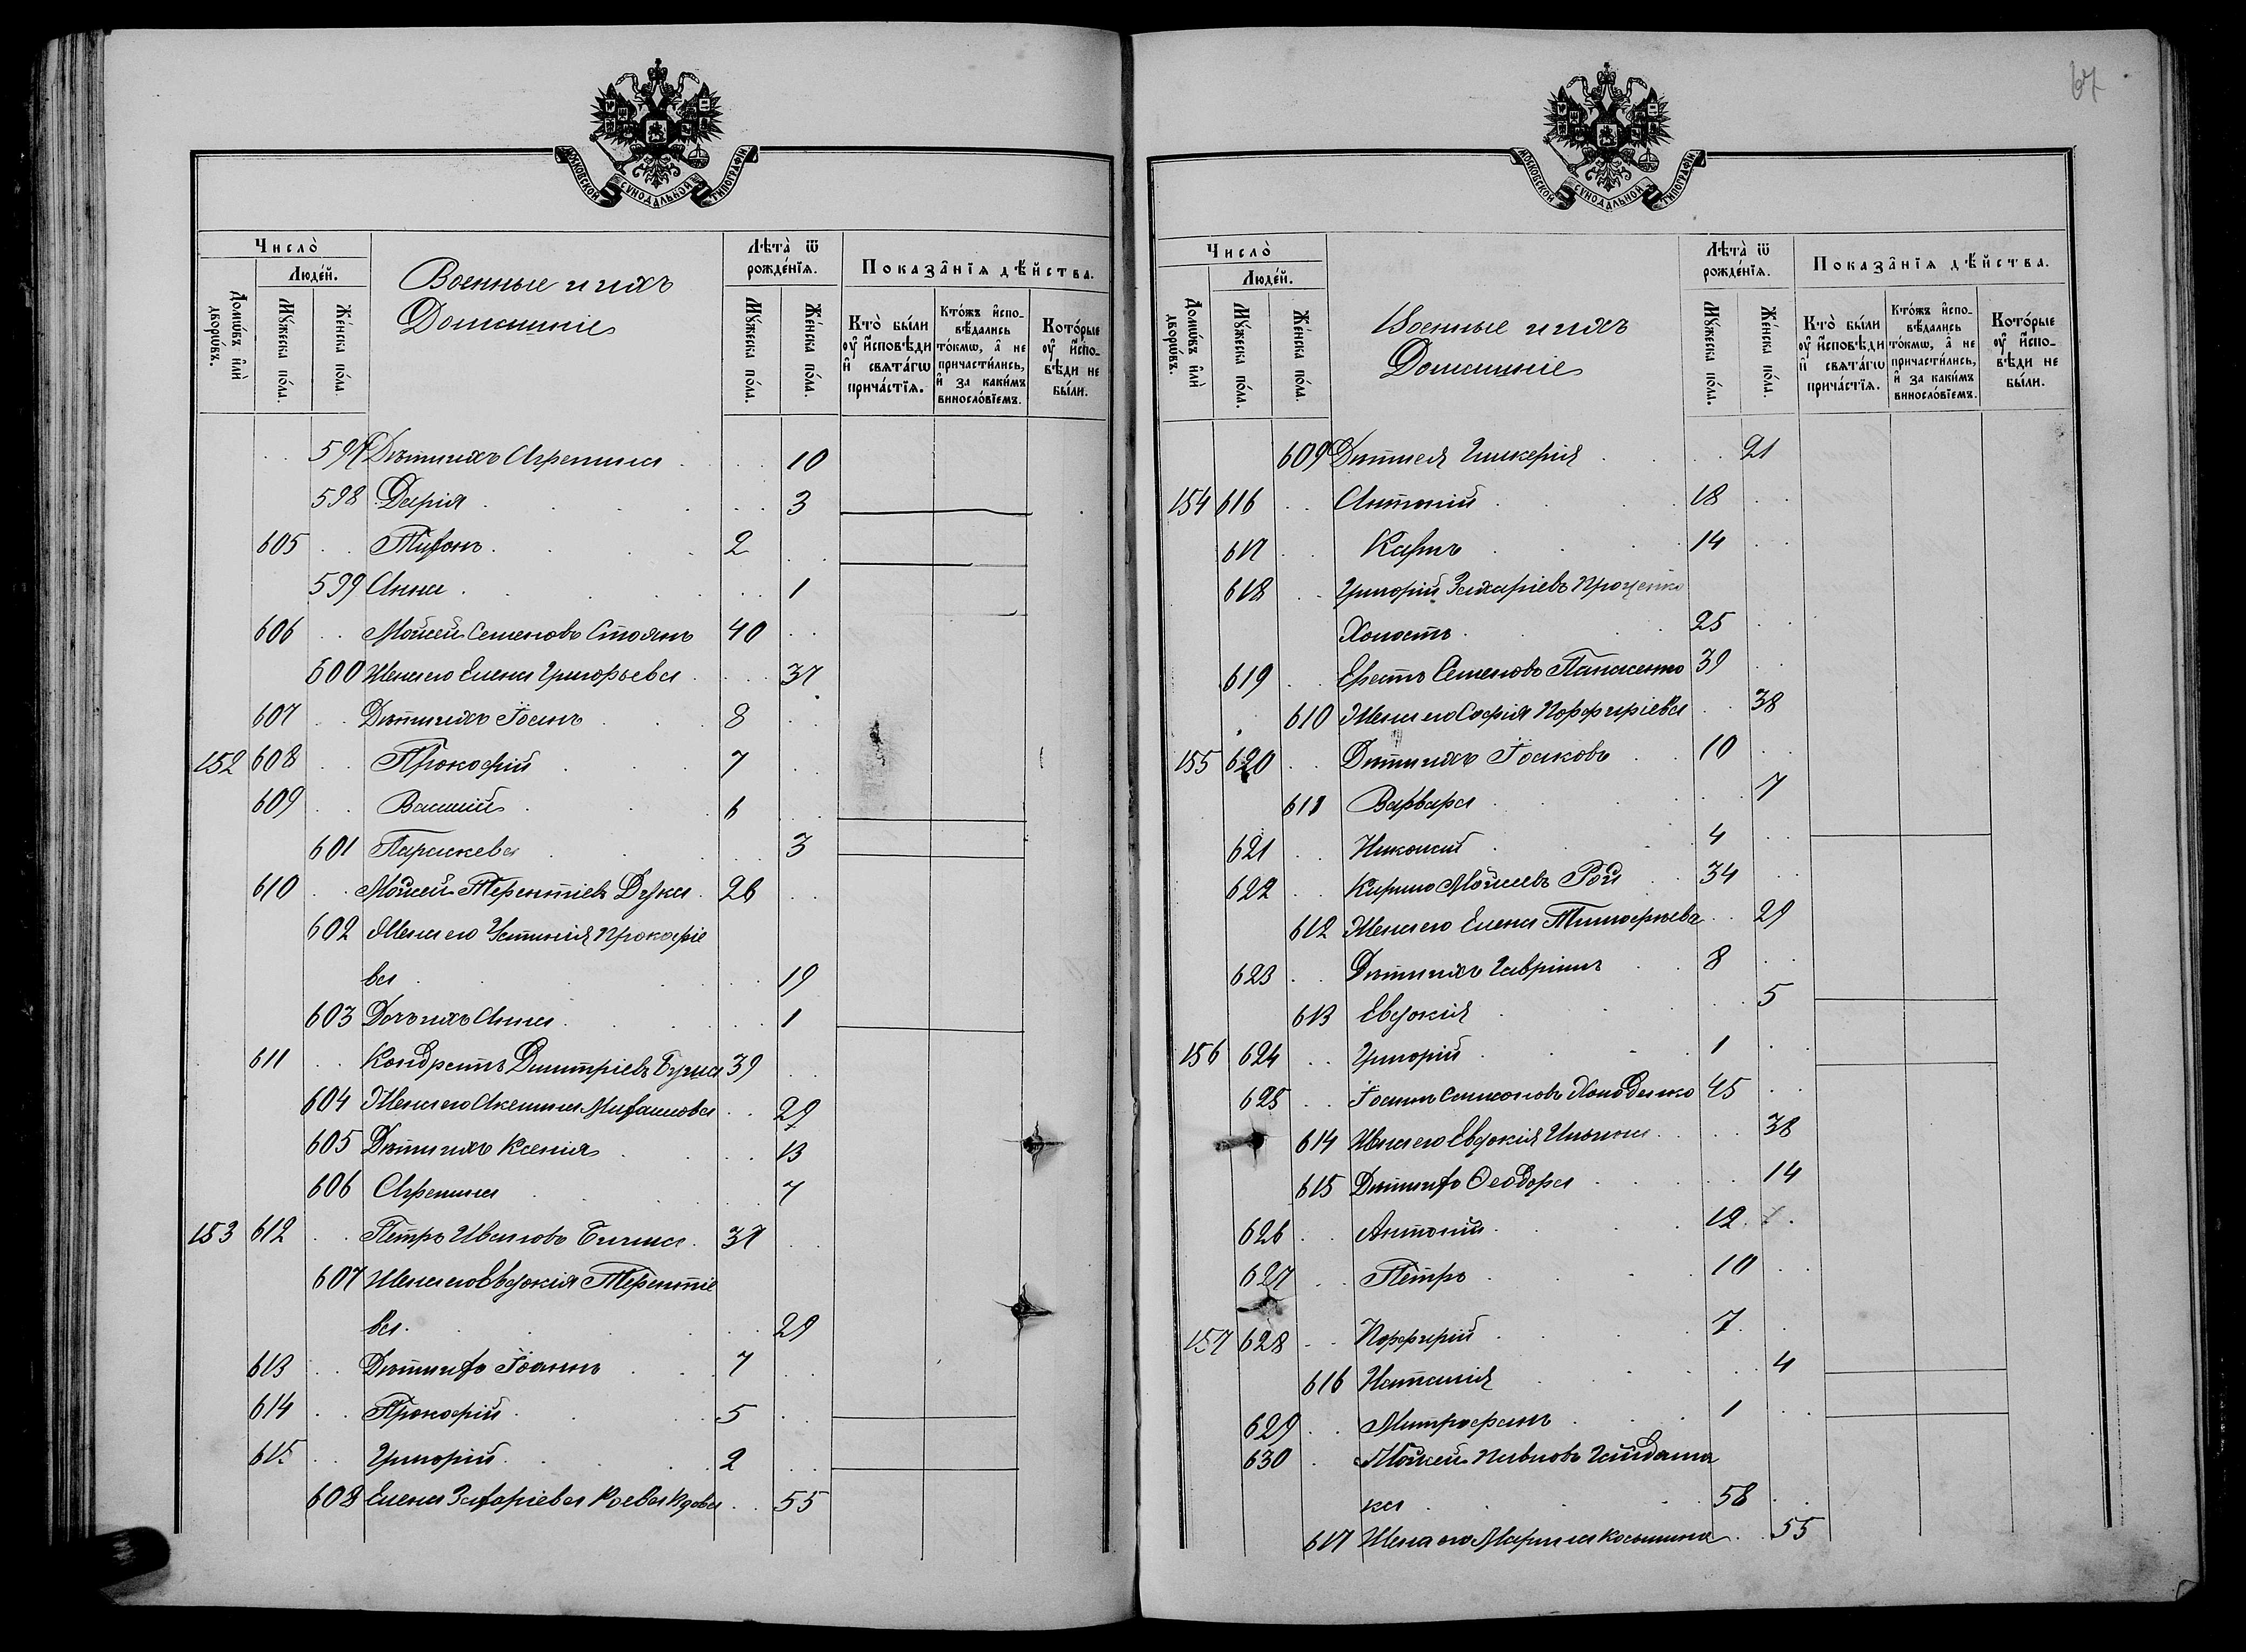 МОСКОВСКОЙ СѴНОДАЛЬНОЙ ТИПОГРАФІИ.
Число̀
Людéй.
Домѡ́въ и҆лѝ дворѡ́въ.
Мꙋ́жеска по́ла.
Же́нска по́ла.
Военные и ихъ
Домашніе
Лѣта̀ ѿ рожде́нїѧ.
Мꙋ́жеска по́ла.
Же́нска по́ла.
Показа̑нїѧ дѣ́йства.
Кто̀ бы́ли оу҆ и҆сповѣ́ди и҆ свѧта́гѡ прича́стїѧ.
Кто́жъ и҆спо-вѣ́дались то́кмѡ, а҆ не причасти́лись, и҆ за каки́мъ виносло́вїемъ.
Кото́рые оу҆ и҆спо-вѣ́ди не бы́ли.
597 Дѣти ихъ Агрепина 10
598 Дарія 3
605 Тихонъ 2
599 Анна 1
606 Мойсей Семеновъ Стоянъ 40
600 Жена его Елена Григорьева 37
607 Дѣти ихъ Іоанъ 8
152 608 Прокофій 7
609 Василій 6
601 Параскева 3
610 Мойсей Терентіевъ Дука 26
602 Жена его Устинія Прокофіе
ва 19
603 Дочь ихъ Анна 1
611 Кондратъ Димитріевъ 39
604 Жена его Акелина Михаилова 29
605 Дѣти ихъ Ксенія 13
606 Агрепина 7
153 612 Петръ Ивановъ 37
607 Жена его Евдокія Терентіе
ва 29
613 Дѣти ихъ Іоаннъ 7
614 Прокофій 5
615 Григорій 2
608 Елена Захаріева Роева вдова 55
67
МОСКОВСКОЙ СѴНОДАЛЬНОЙ ТИПОГРАФІИ.
Число̀
Людéй.
Домѡ́въ и҆лѝ дворѡ́въ.
Мꙋ́жеска по́ла.
Же́нска по́ла.
Военные и ихъ
Домашніе
Лѣта̀ ѿ рожде́нїѧ.
Мꙋ́жеска по́ла.
Же́нска по́ла.
Показа̑нїѧ дѣ́йства.
Кто̀ бы́ли оу҆ и҆сповѣ́ди и҆ свѧта́гѡ прича́стїѧ.
Кто́жъ и҆спо-вѣ́дались то́кмѡ, а҆ не причасти́лись, и҆ за каки́мъ виносло́вїемъ.
Кото́рые оу҆ и҆спо-вѣ́ди не бы́ли.
609 Дѣти ея Гликерія 21
154 616 Антоній 18
617 Карпъ 14
618 Григорій Захаріевъ Проценко
Холостъ 25
619 Ерастъ Семеновъ Панасенко 39
610 Жена его Софія Порфиріева 38
155 620 Дѣти ихъ Іоаковъ 10
611 Варвара 7
621 Николай 4
622 Кирило Мойсеевъ Рой 34
612 Жена его Елена Тимофѣева 29
623 Дѣти ихъ Гавріилъ 8
613 Евдокія 5
156 624 Григорій 1
625 Іоанъ Симоновъ Холоденко 45
614 Жена его Евдокія Ильина 38
615 Дѣти ихъ Ѳеодора 14
626 Антоній 12
627 Петръ 10
157 628 Порфирій 7
616 Наталія 4
629 Митрофанъ 1
630 Мойсей Павловъ Гайдама
ка 58
617 Жена его Марина Косьмина 55